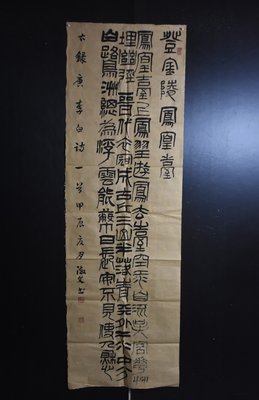 登金陵鳳凰臺
鳳皇臺上鳳皇遊鳳去臺空江自流吳宮花草
埋幽徑晉代衣冠成古丘三山半落青天外二水中分
白鷺洲總為浮雲能蔽日長安不見使人愁
右錄唐李白诗一首甲辰夏月